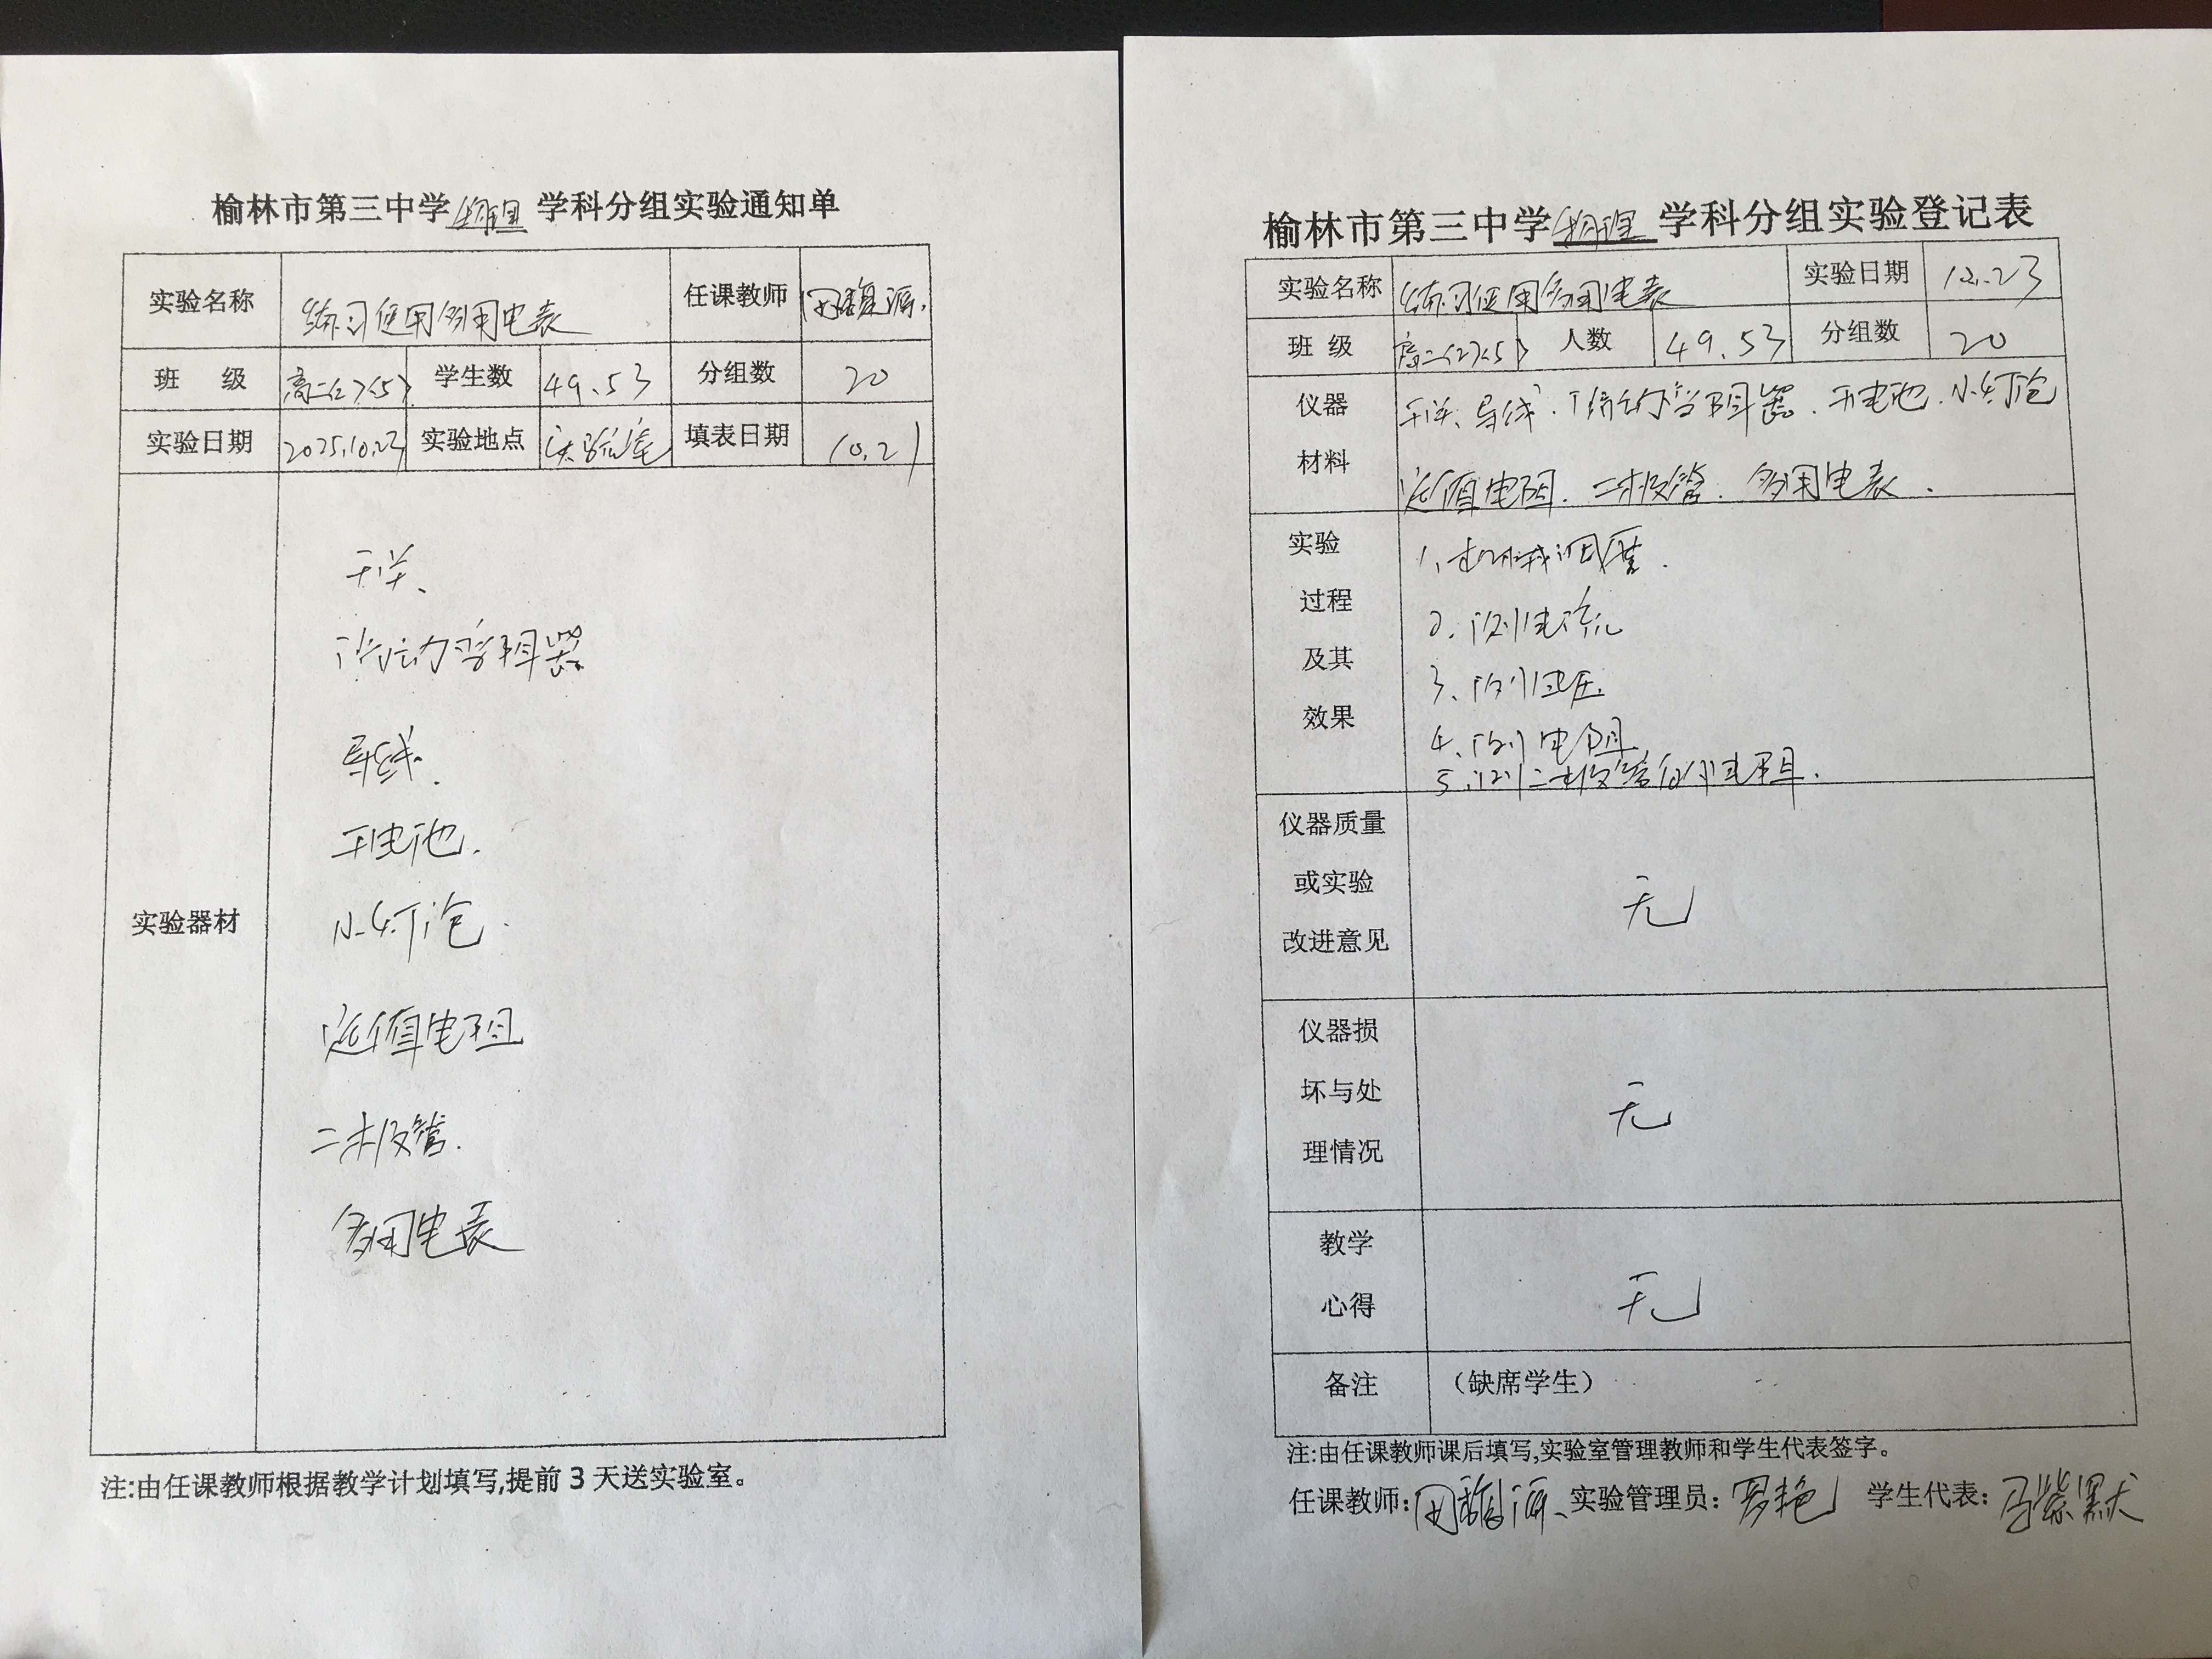 榆林市第三中学物理学科分组实验通知单
实验名称 练习使用多用电表 任课教师
班 级 高二(2)(5) 学生数 49.53 分组数 20
实验日期 2025.10.23 实验地点 实验室 填表日期 10.21
实验器材
开关、
滑动变阻器
导线.
干电池.
小灯泡.
定值电阻
二极管.
多用电表
注:由任课教师根据教学计划填写,提前3天送实验室。
榆林市第三中学物理学科分组实验登记表
实验名称 练习使用多用电表 实验日期
班 级 高二(2)(5) 人数 49.53 分组数 20
仪器材料 开关、导线、滑动变阻器.干电池.小灯泡
定值电阻.二极管.多用电表.
实验过程及其效果
1、机械调零.
2.测电流
3、测电压.
4.测电阻
5.测二极管 电阻.
仪器质量或实验改进意见 无
仪器损坏与处理情况 无
教学心得 无
备注 (缺席学生)
注:由任课教师课后填写,实验室管理教师和学生代表签字。
任课教师: 实验管理员:罗艳 学生代表:马紫默